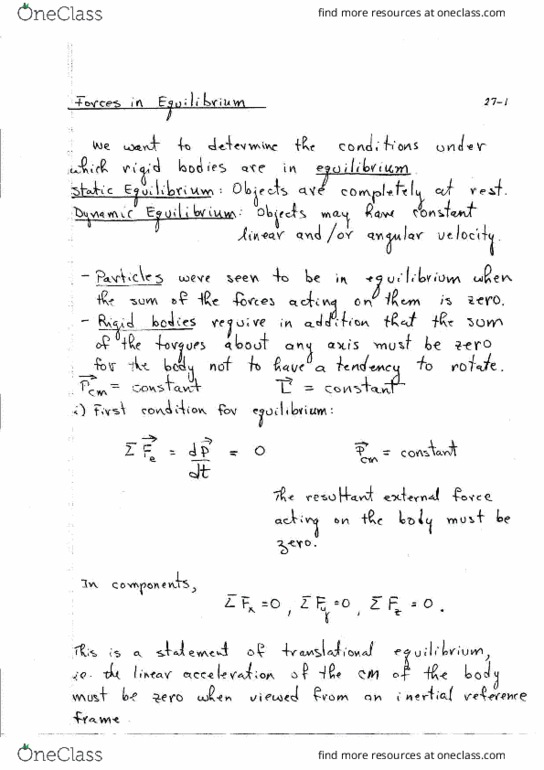 OneClass
find more resources at oneclass.com
Forces in Equilibrium 27-1
We want to determine the conditions under
which rigid bodies are in equilibrium.
Static Equilibrium: Objects are completely at rest.
Dynamic Equilibrium: Objects may have constant
linear and/or angular velocity.
- Particles were seen to be in equilibrium when
the sum of the forces acting on them is zero.
- Rigid bodies require in addition that the sum
of the torques about any axis must be zero
for the body not to have a tendency to rotate.
P⃗cm = constant L⃗ = constant
i) First condition for equilibrium:
Σ F⃗e = dP⃗/dt = 0 P⃗cm = constant
The resultant external force
acting on the body must be
zero.
In components,
Σ Fx = 0, Σ Fy = 0, Σ Fz = 0.
This is a statement of translational equilibrium,
i.e. the linear acceleration of the cm of the body
must be zero when viewed from an inertial reference
frame.
OneClass
find more resources at oneclass.com